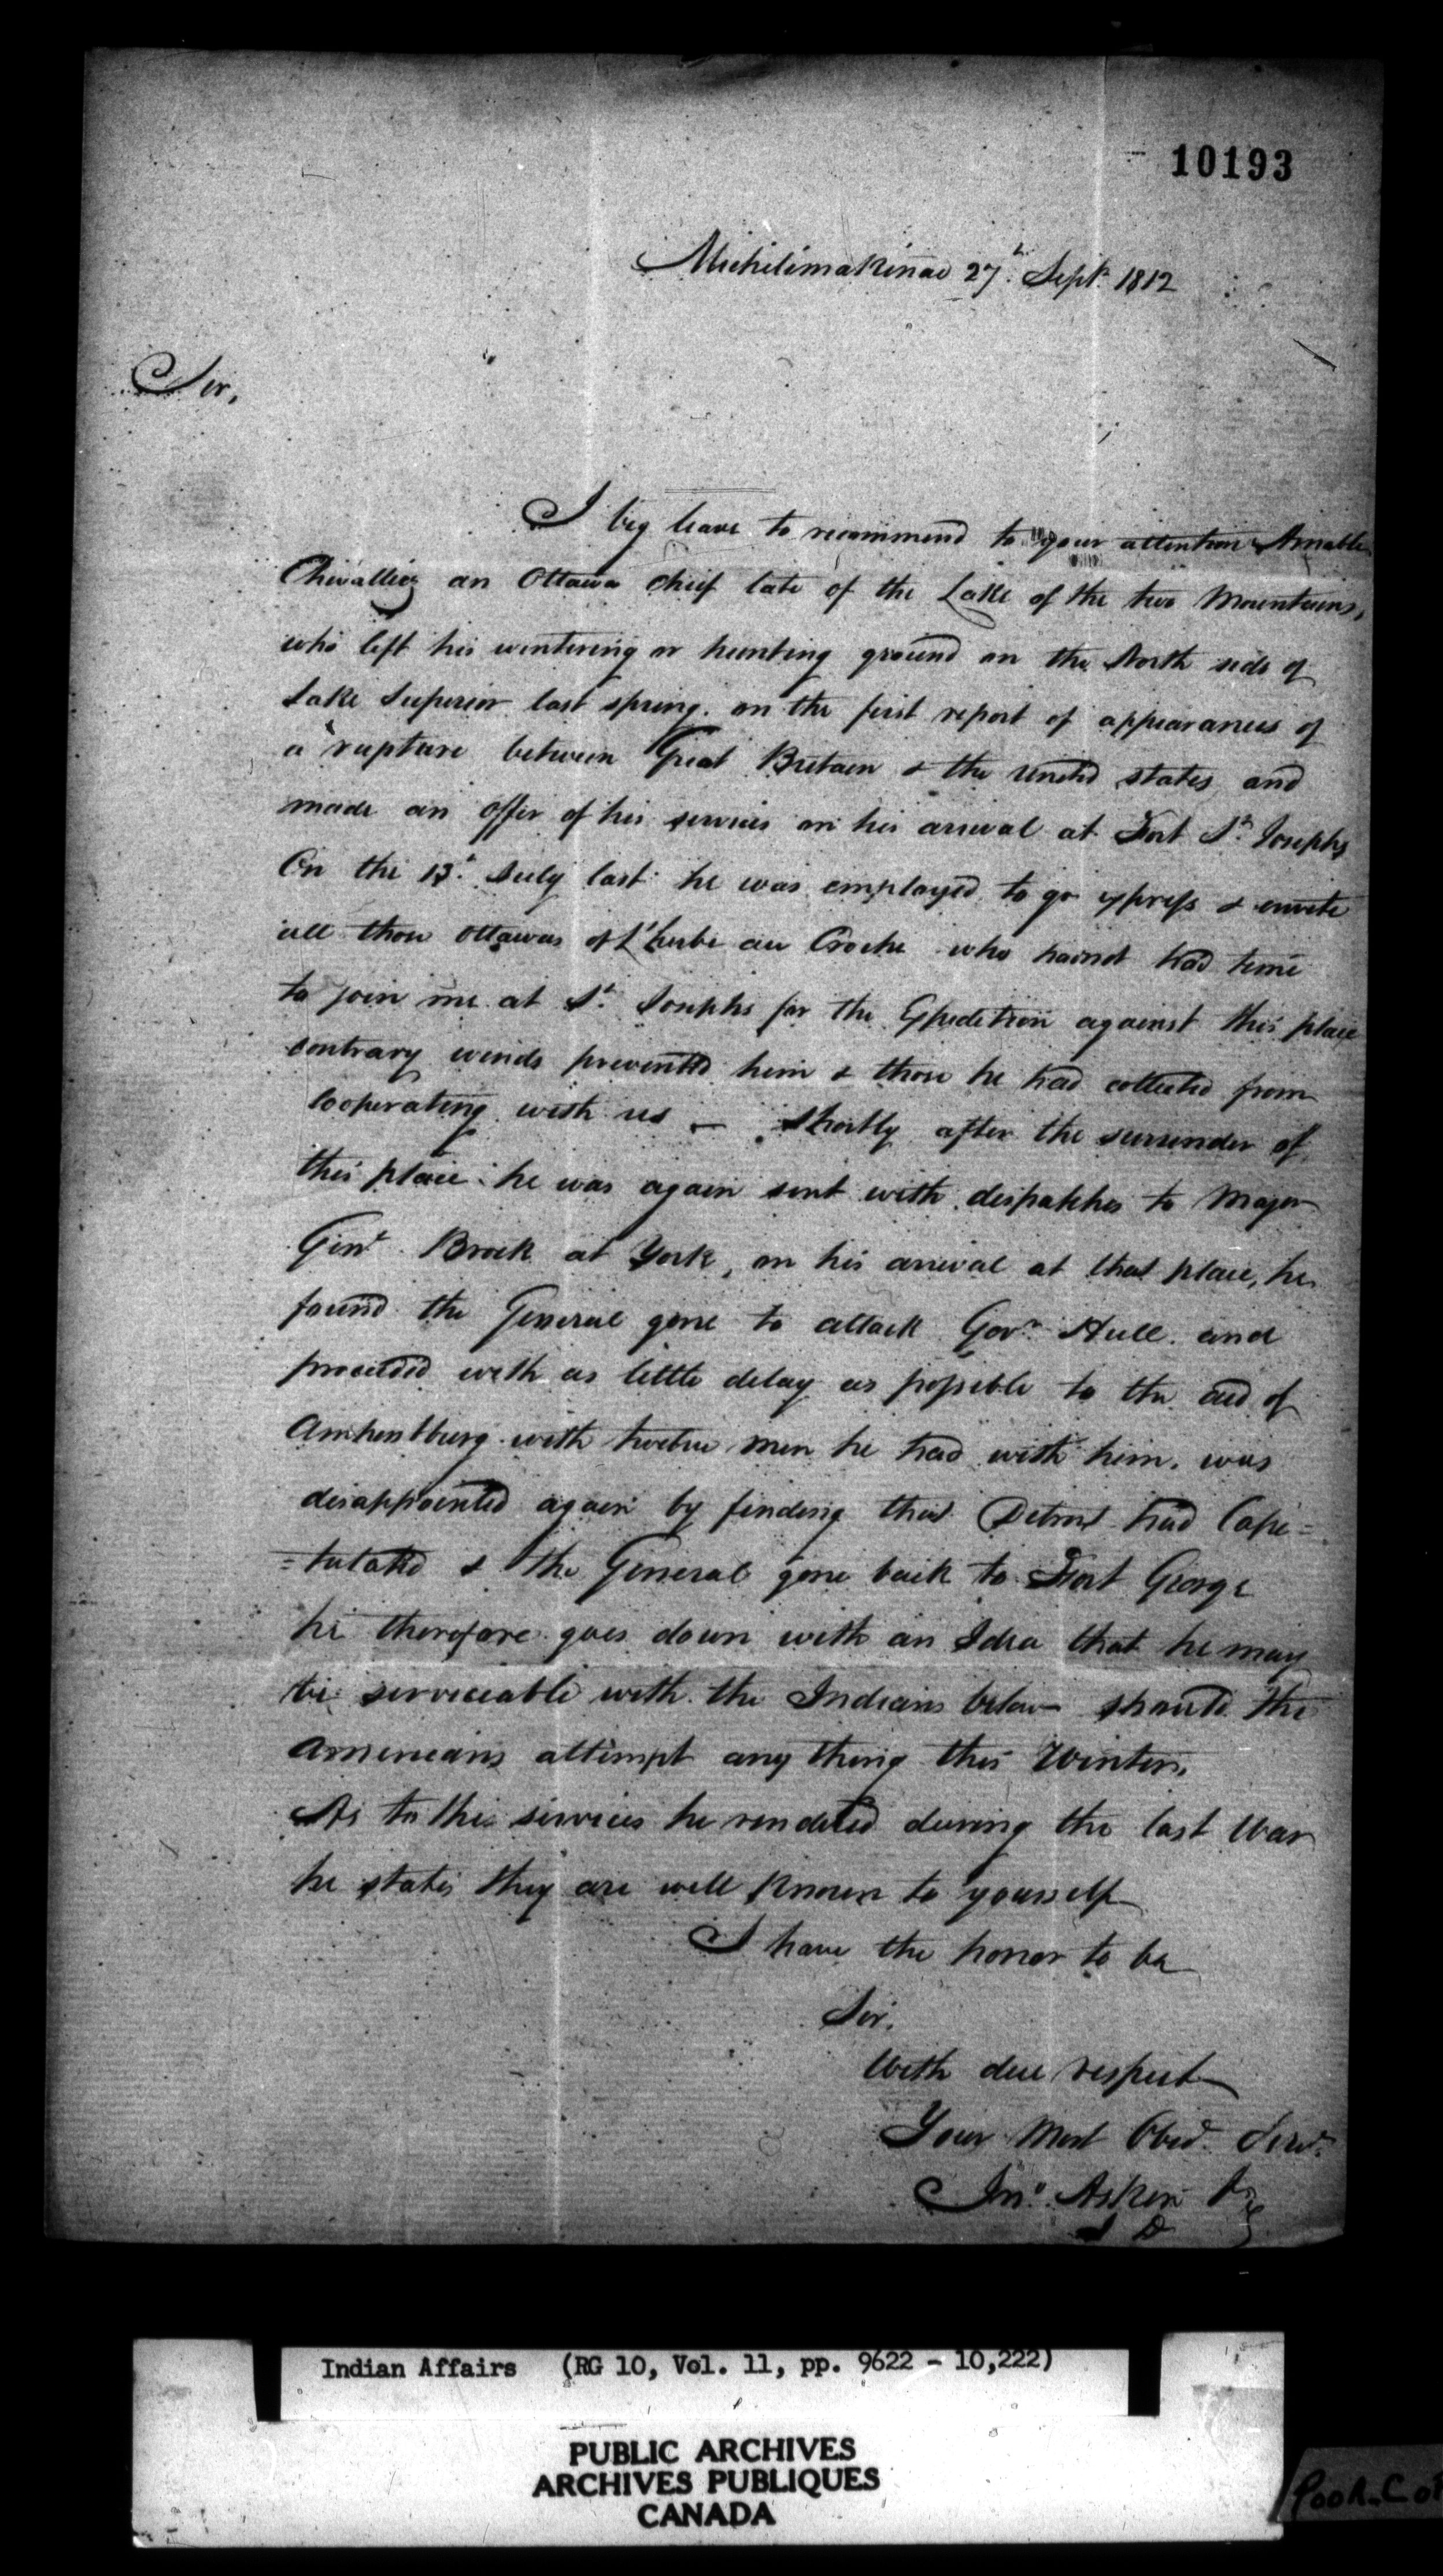 10193
Michilimakinac 27th Septr. 1812
Sir,
I beg leave to recommend to your attention Amable
Chivallier an Ottawa chief late of the Lake of the two Mountains,
who left his wintering or hunting ground on the North side of
Lake Superior last spring. on the first report of appearances of
a rupture between Great Britain & the united states, and
made an offer of his services on his arrival at Fort St. Josephs
On the 13th. July last he was employed to go express & invite
all those ottawas of L'herbe au Croche who had not had time
to join me at St. Josephs for the Expedition against this place
contrary winds prevented him & those he had collected from
Cooperating with us — Shortly after the surrender of
this place he was again sent with dispatches to Major
Genl. Brock at York, on his arrival at that place, he
found the General gone to attack Govr. Hull. and
proceeded with as little delay as possible to the aid of
Amherstburg with twelve men he had with him. was
disappointed again by finding that Detroit had Capi=
=tulated & the General gone back to Fort George
he therefore goes down with an Idea that he may
be serviceable with the Indians below should the
Americans attempt any thing this Winter.
As to the services he rendered during the last War
he states they are well known to yourself
I have the honor to be
Sir.
With due respect
Your Most Obed. Servt.
Jno. Askin
Indian Affairs (RG 10, Vol. 11, pp. 9622 - 10,222)
PUBLIC ARCHIVES
ARCHIVES PUBLIQUES
CANADA